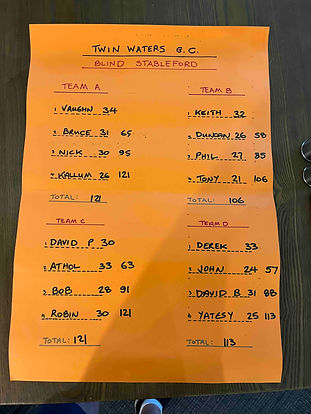 TWIN WATERS G.C.
BLIND STABLEFORD
TEAM A
1 VAUGHN 34
2 BRUCE 31 65
3 NICK 30 95
4 KALLUM 26 121
TOTAL: 121
TEAM B
1 KEITH 32
2 DUNCAN 26 58
3 PHIL 27 85
4 TONY 21 106
TOTAL: 106
TEAM C
1 DAVID P 30
2 ATHOL 33 63
3 BOB 28 91
4 ROBIN 30 121
TOTAL: 121
TEAM D
1 DEREK 33
2 JOHN 24 57
3 DAVID B 31 88
4 YATESY 25 113
TOTAL: 113